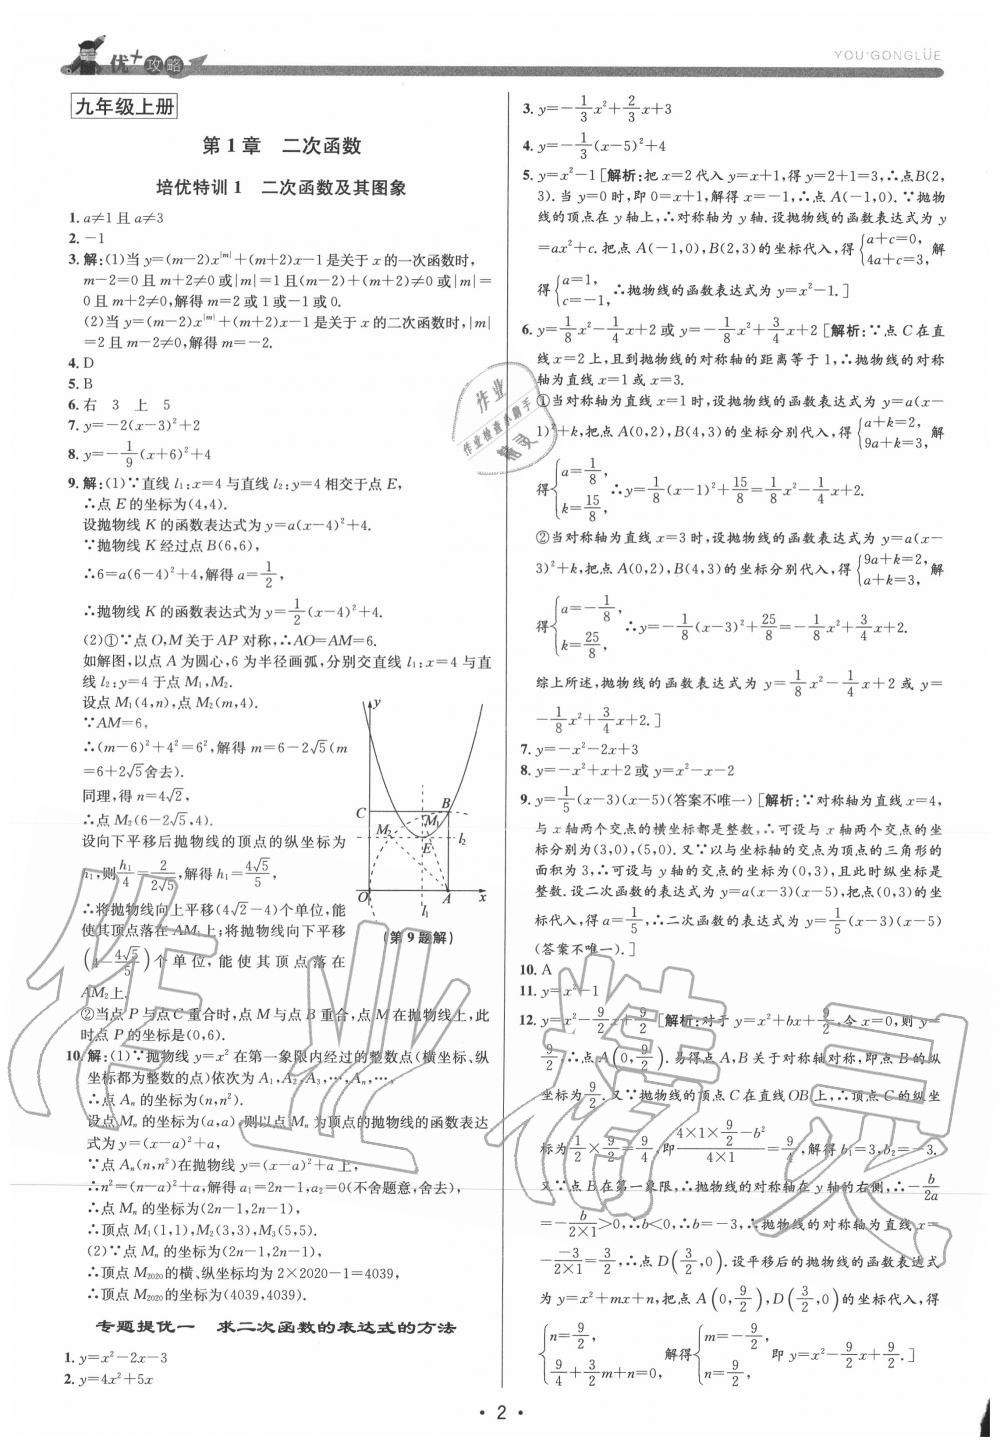 优+攻略
YOU+GONGLÜE
九年级上册
第1章 二次函数
培优特训1 二次函数及其图象
1. a≠1且a≠3
2. -1
3. 解:(1)当y=(m-2)x^|m|+(m+2)x-1是关于x的一次函数时,
m-2=0且m+2≠0或|m|=1且(m-2)+(m+2)≠0或|m|=
0且m+2≠0,解得m=2或1或-1或0.
(2)当y=(m-2)x^|m|+(m+2)x-1是关于x的二次函数时,|m|
=2且m-2≠0,解得m=-2.
4. D
5. B
6. 右 3 上 5
7. y=-2(x-3)²+2
8. y=-1/9(x+6)²+4
9. 解:(1)∵直线l₁:x=4与直线l₂:y=4相交于点E,
∴点E的坐标为(4,4).
设抛物线K的函数表达式为y=a(x-4)²+4.
∵抛物线K经过点B(6,6),
∴6=a(6-4)²+4,解得a=1/2,
∴抛物线K的函数表达式为y=1/2(x-4)²+4.
(2)①∵点O,M关于AP对称,∴AO=AM=6.
如解图,以点A为圆心,6为半径画弧,分别交直线l₁:x=4与直
线l₂:y=4于点M₁,M₂.
设点M₁(4,n),点M₂(m,4).
∵AM=6,
∴(m-6)²+4²=6²,解得m=6-2√5(m
=6+2√5舍去).
同理,得n=4√2,
∴点M₂(6-2√5,4).
设向下平移后抛物线的顶点的纵坐标为
h₁,则h₁/4=2/2√5,解得h₁=4√5/5,
∴将抛物线向上平移(4√2-4)个单位,能
使其顶点落在AM₁上;将抛物线向下平移
(4-4√5/5)个单位,能使其顶点落在
AM₂上.
y
C
B
M₁
M₂
E
l₂
O
l₁
A
x
(第9题解)
②当点P与点C重合时,点M与点B重合,点M在抛物线上,此
时点P的坐标是(0,6).
10. 解:(1)∵抛物线y=x²在第一象限内经过的整数点(横坐标、纵
坐标都为整数的点)依次为A₁,A₂,A₃,…,Aₙ,…,
∴点Aₙ的坐标为(n,n²).
设点Mₙ的坐标为(a,a),则以点Mₙ为顶点的抛物线的函数表达
式为y=(x-a)²+a,
∵点Aₙ(n,n²)在抛物线y=(x-a)²+a上,
∴n²=(n-a)²+a,解得a₁=2n-1,a₂=0(不舍题意,舍去),
∴点Mₙ的坐标为(2n-1,2n-1),
∴顶点M₁(1,1),M₂(3,3),M₃(5,5).
(2)∵点Mₙ的坐标为(2n-1,2n-1),
∴顶点M₂₀₂₀的横、纵坐标均为2×2020-1=4039,
∴顶点M₂₀₂₀的坐标为(4039,4039).
专题提优一 求二次函数的表达式的方法
1. y=x²-2x-3
2. y=4x²+5x
3. y=-1/3x²+2/3x+3
4. y=-1/3(x-5)²+4
5. y=x²-1[解析:把x=2代入y=x+1,得y=2+1=3,∴点B(2,
3).当y=0时,即0=x+1,解得x=-1,∴点A(-1,0).∵抛物
线的顶点在y轴上,∴对称轴为y轴.设抛物线的函数表达式为y
=ax²+c.把点A(-1,0),B(2,3)的坐标代入,得{a+c=0, 4a+c=3,解
得{a=1, c=-1,∴抛物线的函数表达式为y=x²-1.]
6. y=1/8x²-1/4x+2或y=-1/8x²+3/4x+2[解析:∵点C在直
线x=2上,且到抛物线的对称轴的距离等于1,∴抛物线的对称
轴为直线x=1或x=3.
①当对称轴为直线x=1时,设抛物线的函数表达式为y=a(x-
1)²+k,把点A(0,2),B(4,3)的坐标分别代入,得{a+k=2, 9a+k=3,解
得{a=1/8, k=15/8,∴y=1/8(x-1)²+15/8=1/8x²-1/4x+2.
②当对称轴为直线x=3时,设抛物线的函数表达式为y=a(x-
3)²+k,把点A(0,2),B(4,3)的坐标分别代入,得{9a+k=2, a+k=3,解
得{a=-1/8, k=25/8,∴y=-1/8(x-3)²+25/8=-1/8x²+3/4x+2.
综上所述,抛物线的函数表达式为y=1/8x²-1/4x+2或y=
-1/8x²+3/4x+2.]
7. y=-x²-2x+3
8. y=-x²+x+2或y=x²-x-2
9. y=1/5(x-3)(x-5)(答案不唯一)[解析:∵对称轴为直线x=4,
与x轴两个交点的横坐标都是整数,∴可设与x轴两个交点的坐
标分别为(3,0),(5,0).又∵以与坐标轴的交点为顶点的三角形的
面积为3,∴可设与y轴的交点的坐标为(0,3),且此时纵坐标是
整数.设二次函数的表达式为y=a(x-3)(x-5),把点(0,3)的坐
标代入,得a=1/5,∴二次函数的表达式为y=1/5(x-3)(x-5)
(答案不唯一).]
10. A
11. y=x²-1
12. y=x²-9/2x+9/2[解析:对于y=x²+bx+9/2,令x=0,则y=
9/2,∴点A(0,9/2).易得点A,B关于对称轴对称,即点B的纵
坐标为9/2.又∵抛物线的顶点C在直线OB上,∴顶点C的纵坐
标为1/2×9/2=9/4,即(4×1×9/2-b²)/(4×1)=9/4,解得b₁=3,b₂=-3.
又∵点B在第一象限,∴抛物线的对称轴在y轴的右侧,∴-b/2a
=-b/(2×1)>0,∴b<0,∴b=-3,∴抛物线的对称轴为直线x=
-(-3)/(2×1)=3/2,∴点D(3/2,0).设平移后的抛物线的函数表达式
为y=x²+mx+n,把点A(0,9/2),D(3/2,0)的坐标代入,得
{n=9/2, 9/4+3/2m+n=0,解得{m=-9/2, n=9/2,即y=x²-9/2x+9/2.]
· 2 ·
作业
作业检查小助手
精灵
作业精灵